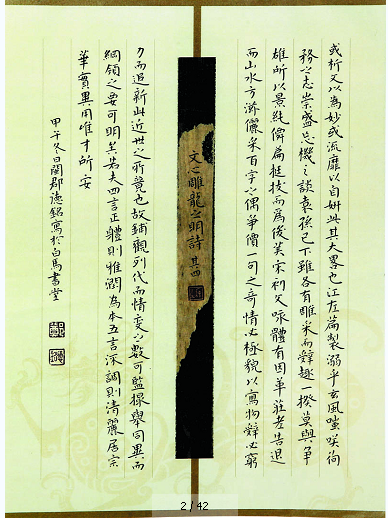 或析文以為妙或流靡以自妍此其大畧也江左篇製溺乎玄風嗤笑徇
務之志崇盛忘機之談袁孫已下雖各有雕采而辭趣一揆莫與爭
雄所以景純僊篇挺拔而為俊矣宋初文咏體有因革莊老告退
而山水方滋儷采百字之偶爭價一句之奇情必極貌以寫物辭必窮
文心雕龍之明詩 其四
力而追新此近世之所競也故鋪觀列代而情變之數可監撮舉同異而
綱領之要可明矣若夫四言正體則雅潤為本五言流調則清麗居宗
華實異用唯才所安
甲午冬日閩郡德銘寫於白馬書堂
2 / 42